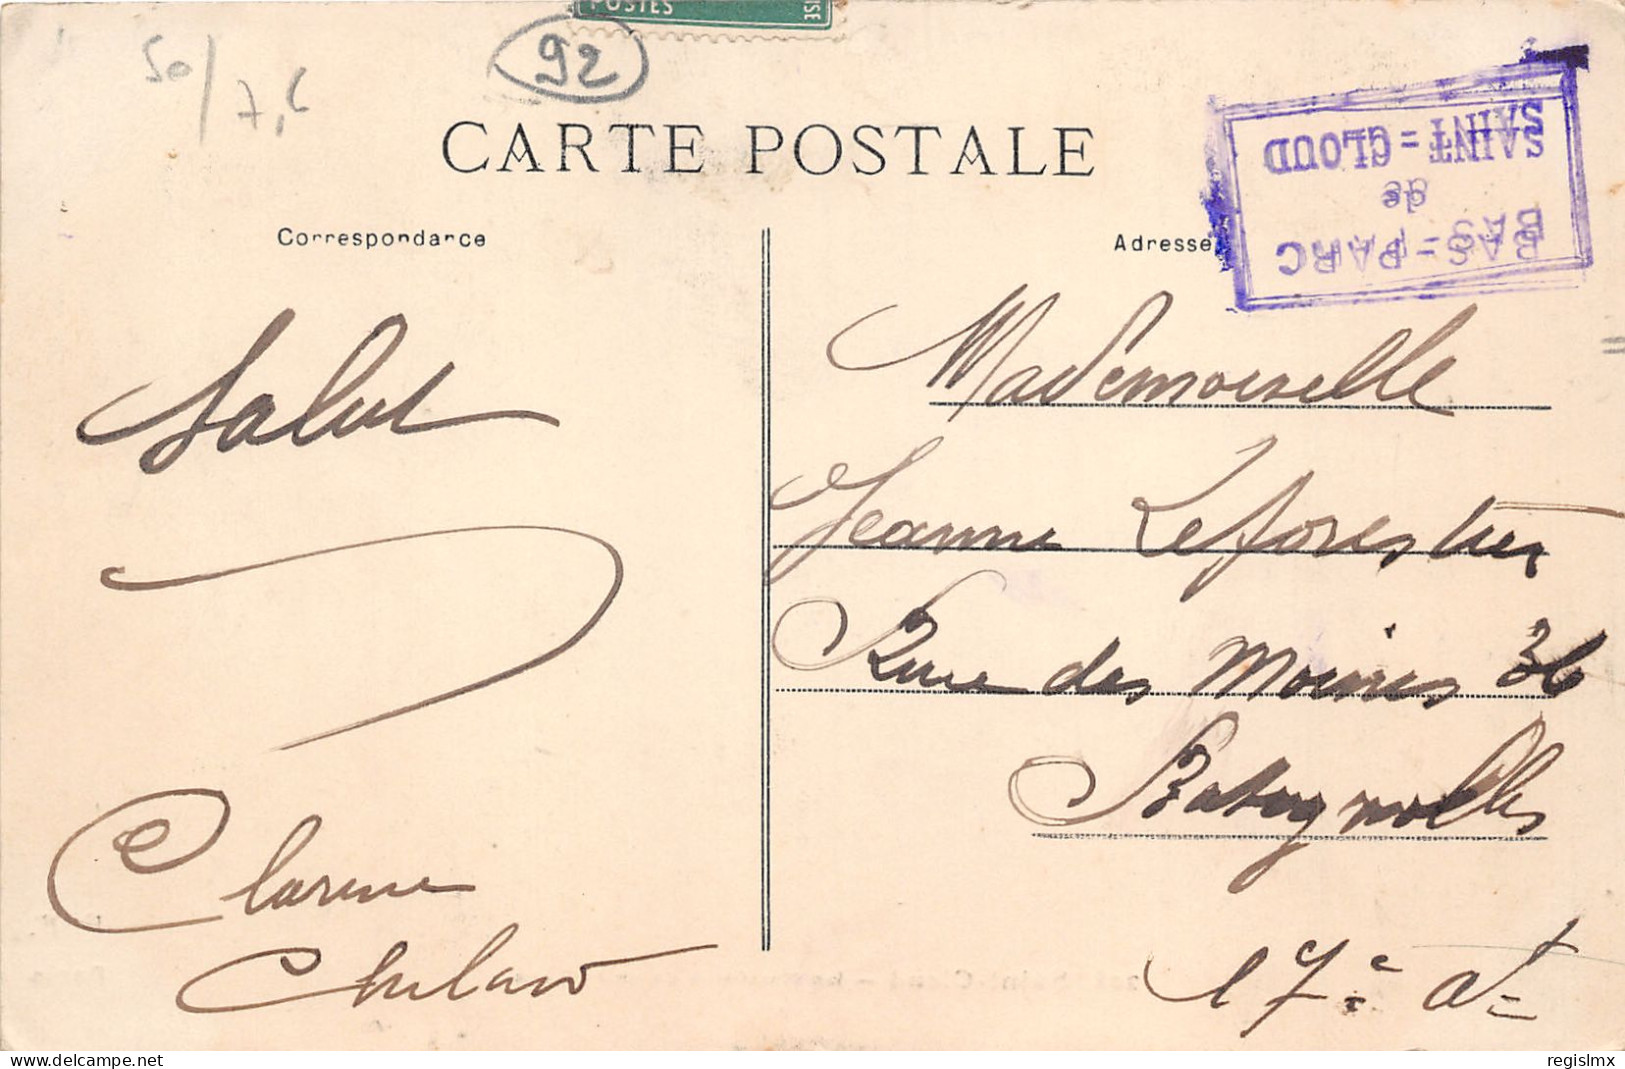 POSTES
50/7,6
92
CARTE POSTALE
Correspondance
Adresse
BAS=PARC
de
SAINT=CLOUD
Salut
Mademoiselle
Jeanne Leforestier
Rue des Moines 36
Batignolles
17e At
Clarisse
delcampe.net
regislmx